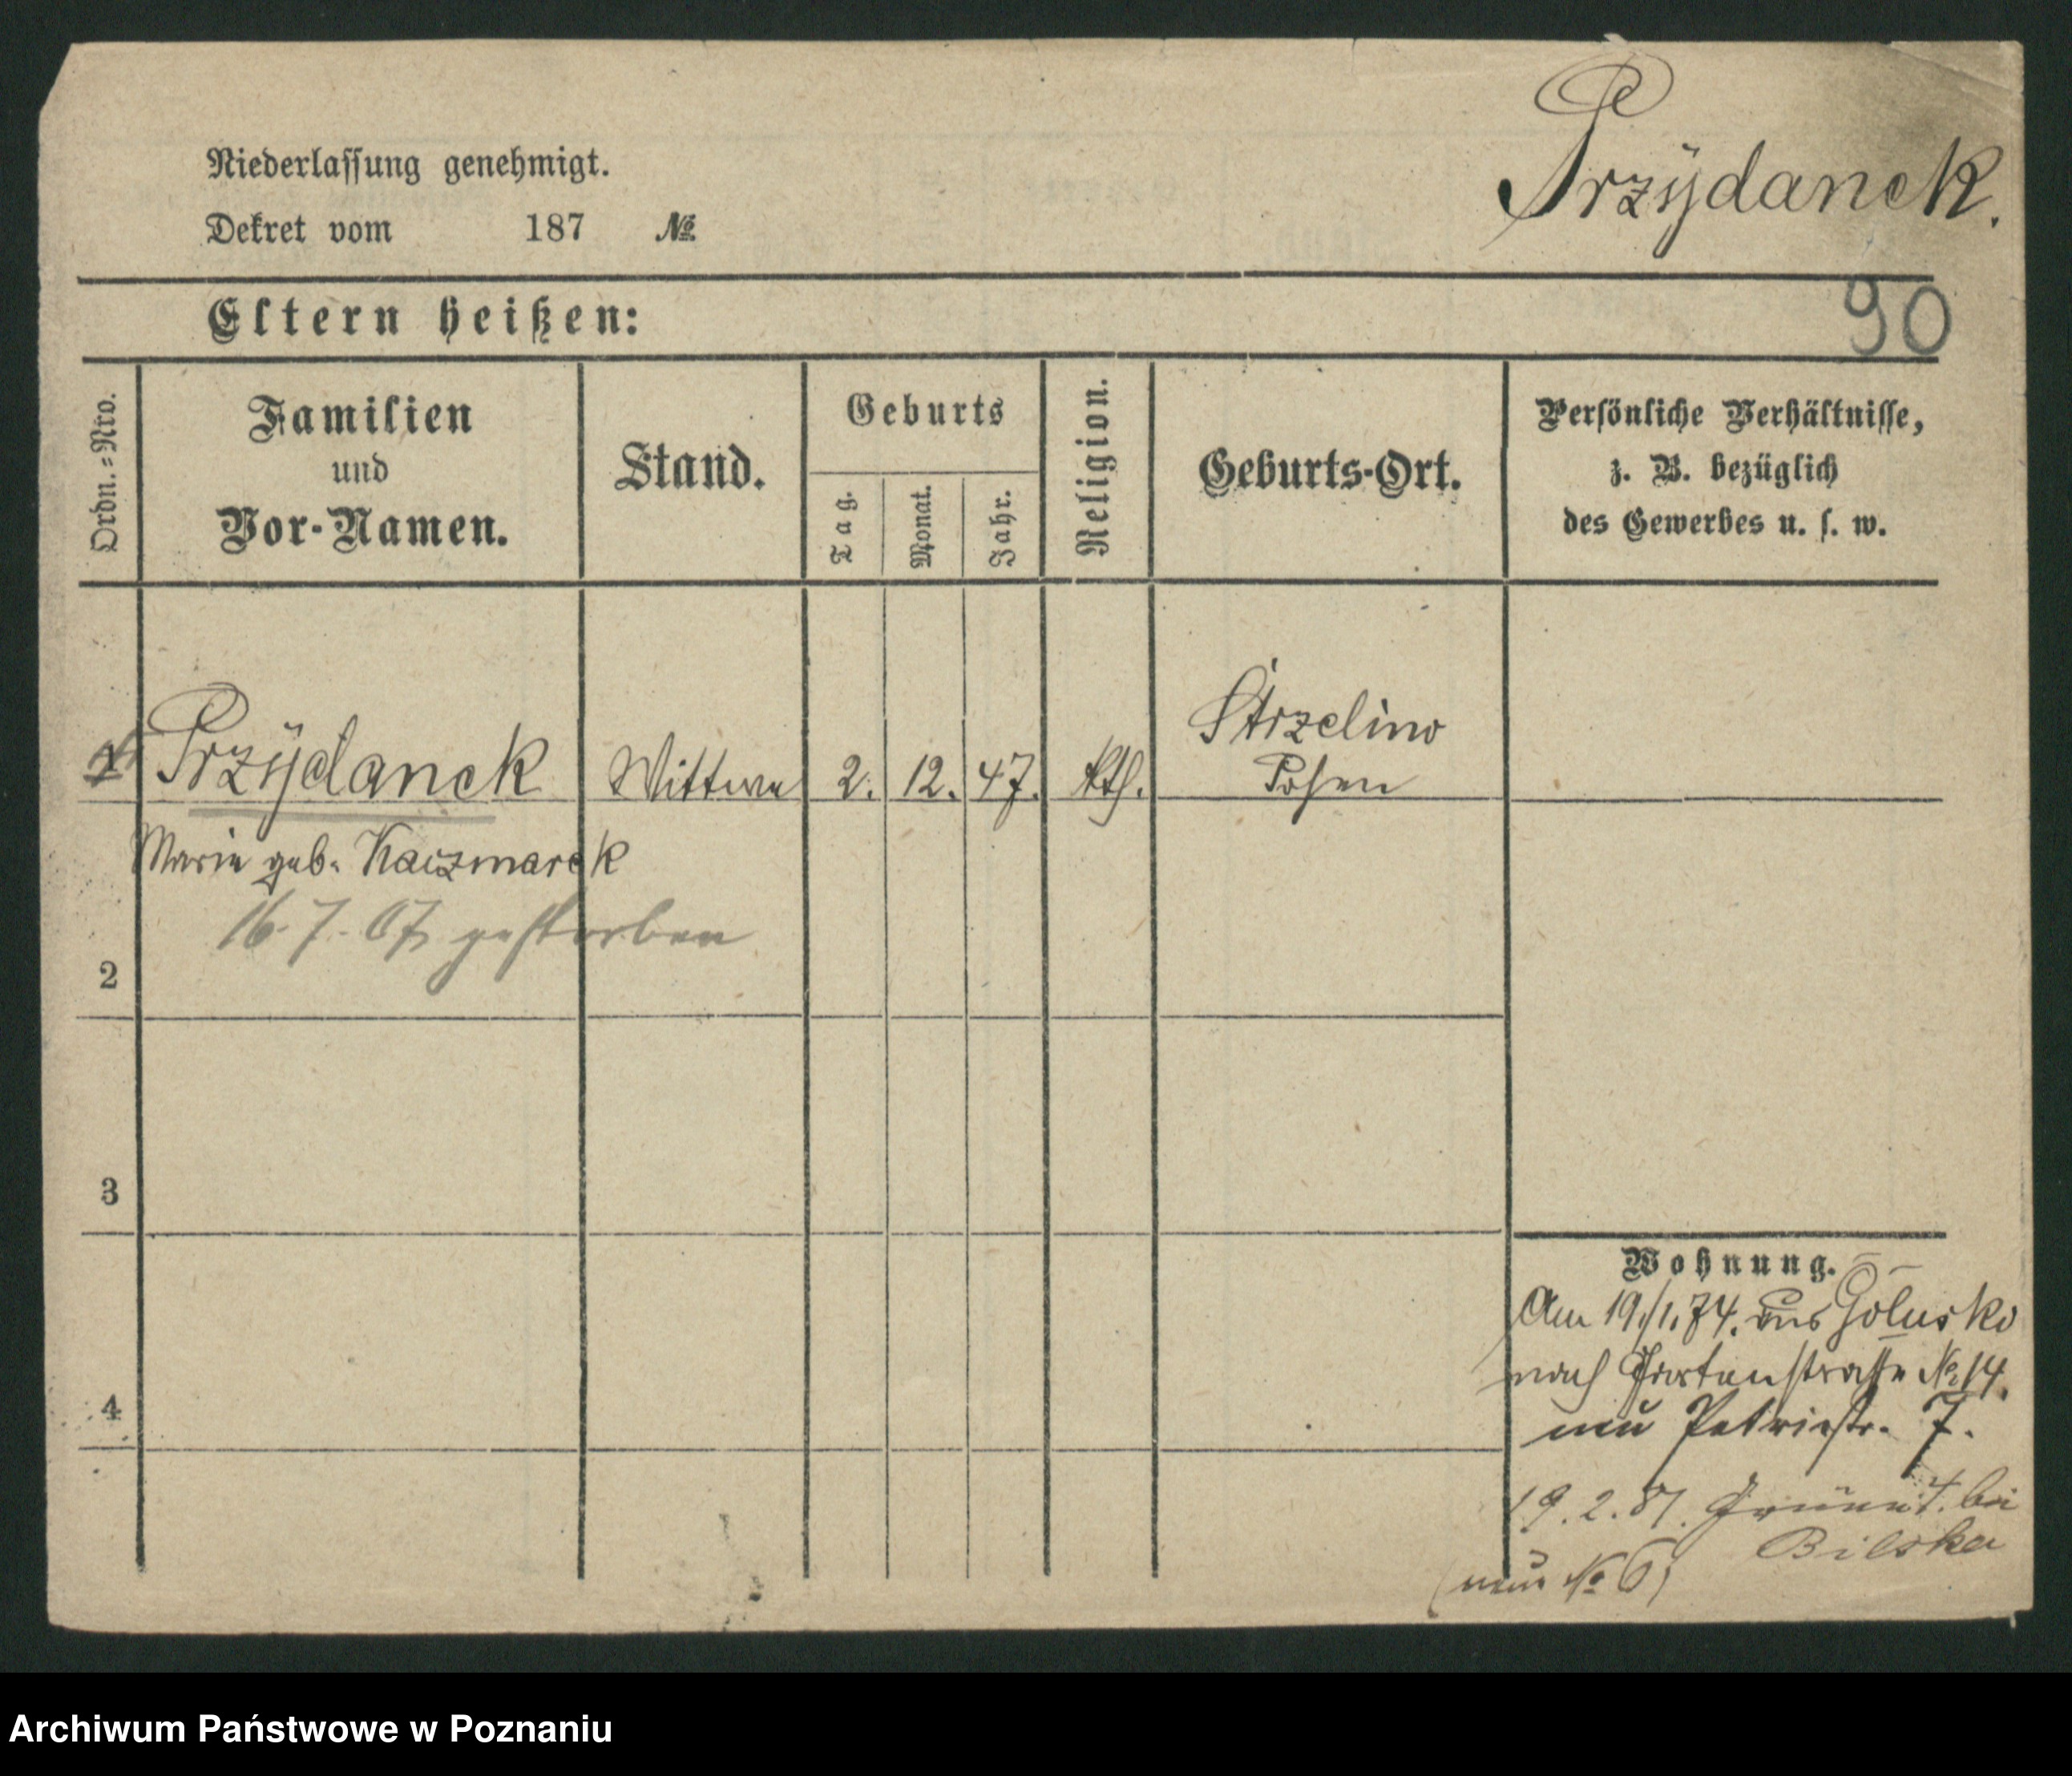 Przÿdanek.
Niederlassung genehmigt.
Dekret vom 187 №
90
Eltern heißen:
Ordn.=Nro.
Familien
und
Vor-Namen.
Stand.
Geburts
Tag.
Monat.
Jahr.
Religion.
Geburts-Ort.
Persönliche Verhältnisse,
z. B. bezüglich
des Gewerbes u. s. w.
1 Przÿdanek Wittwe 2. 12. 47. kth. Strzelino
Posen
Marie geb. Kaczmarek
16. 7. 07 gestorben
2
3
4
Wohnung.
Am 19./1.74. aus Golusko
nach Gartenstrasse № 14.
Petristr. 7.
19. 2. 87. bei
Bilska
№ 6)
Archiwum Państwowe w Poznaniu